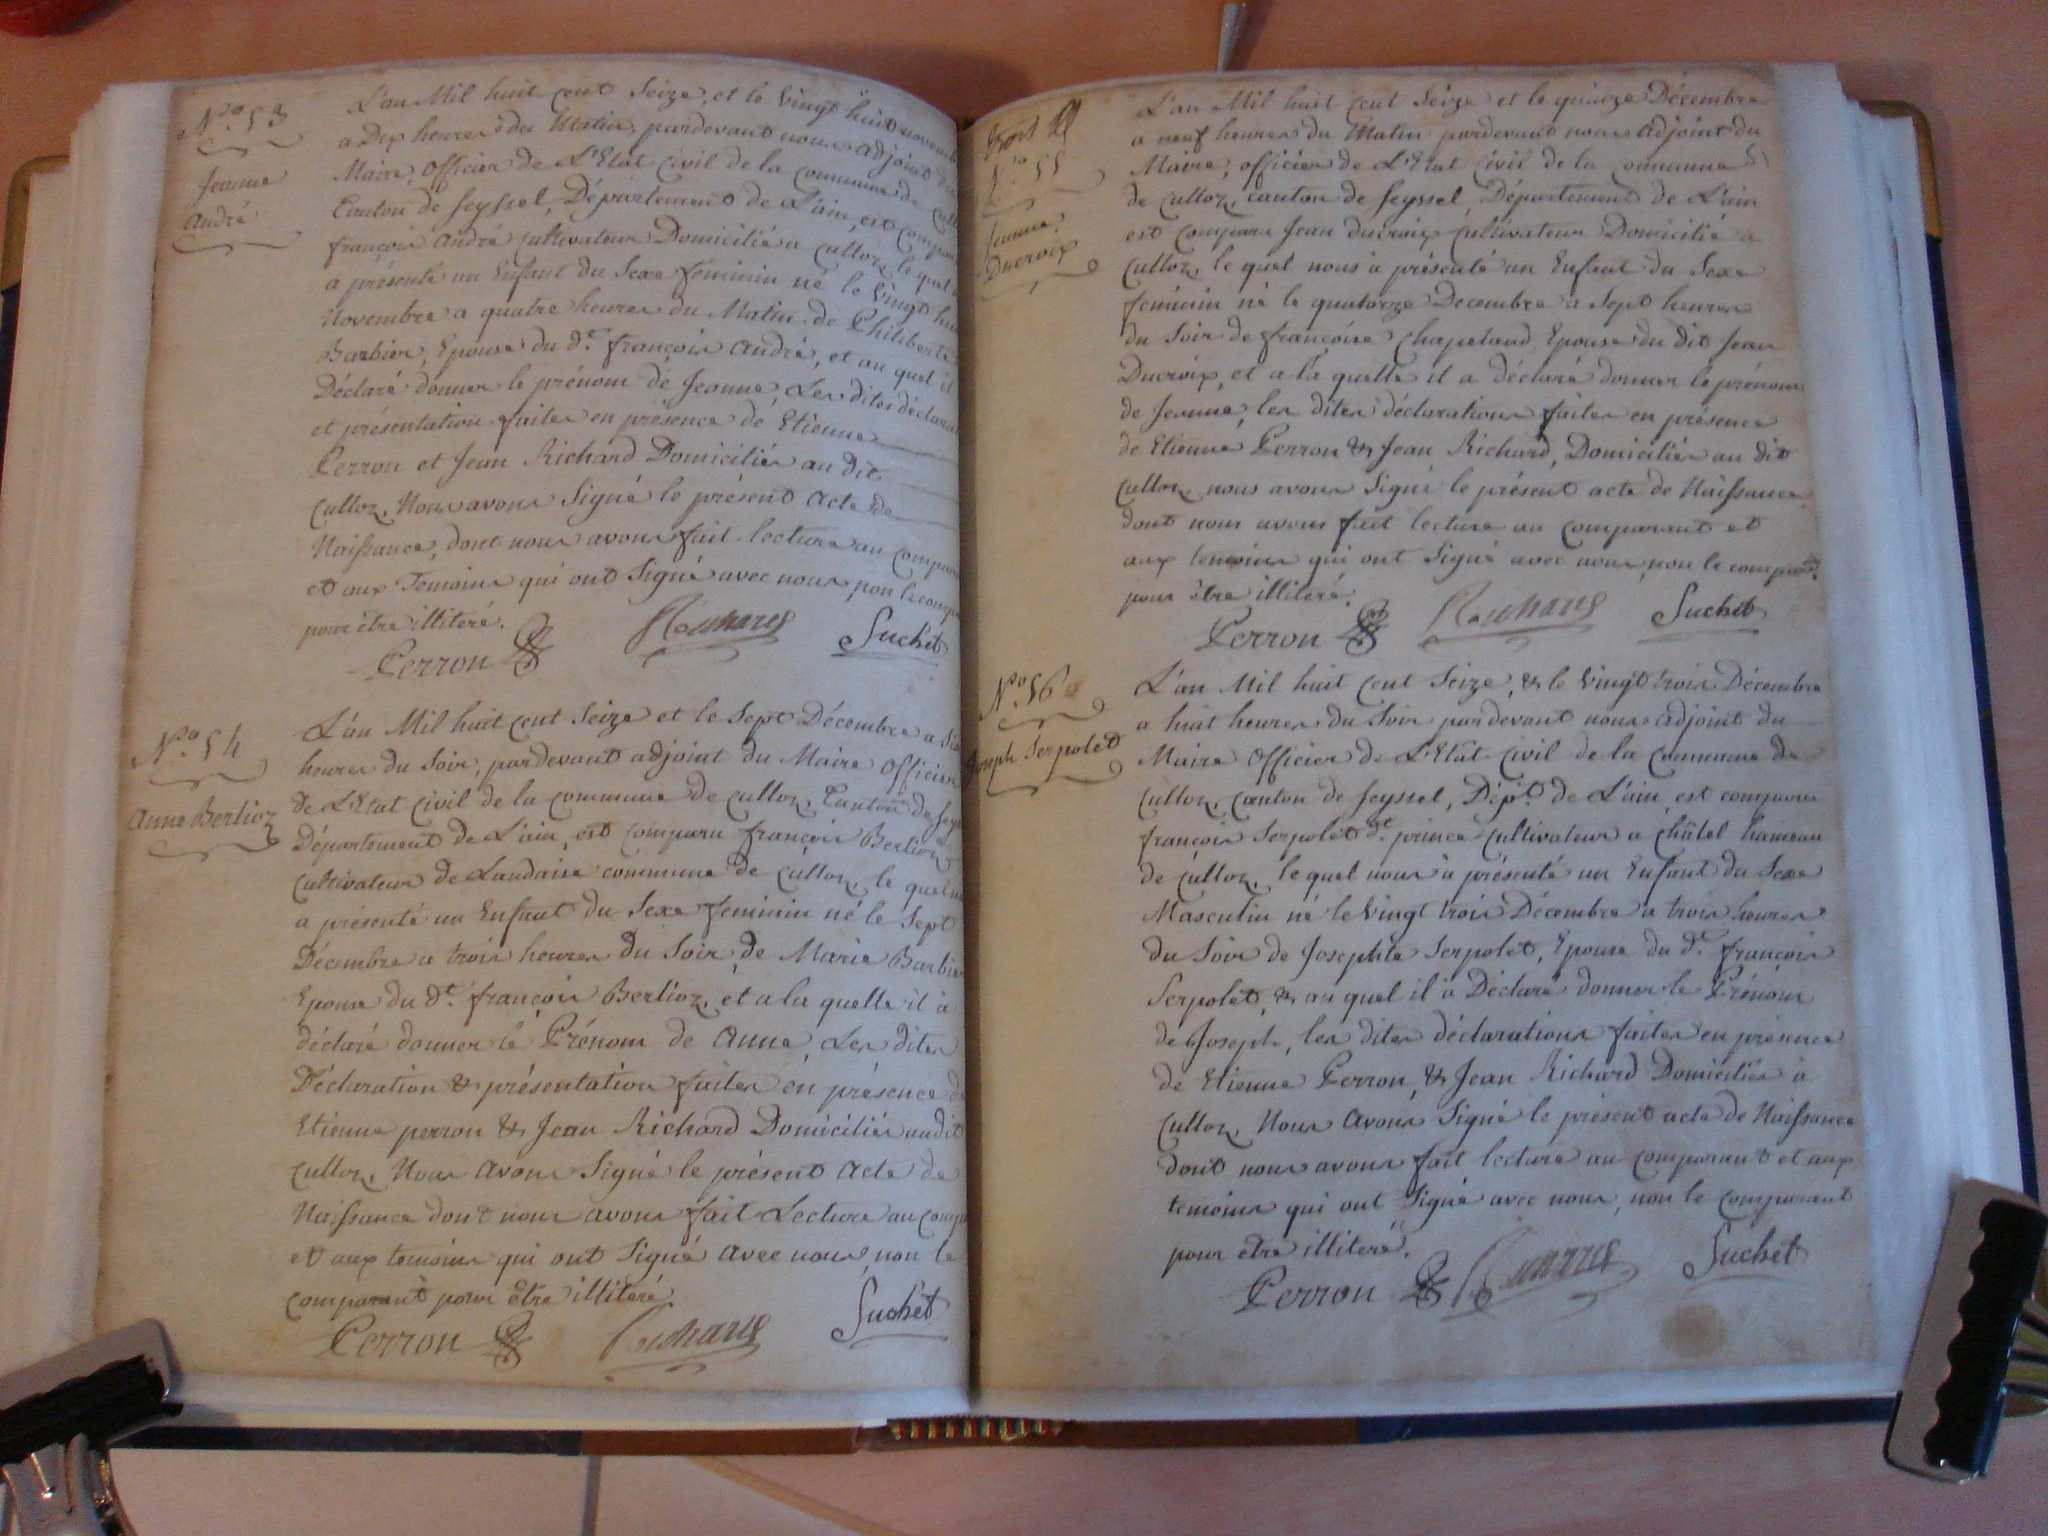 N.º 53
Jeanne
André
L'an Mil huit cent Seize, et le Vingt huit novemb
a Dix heures du Matin, pardevant nous adjoint du
Maire, Officier de L'Etat Civil de la commune de Cull
Canton de Seyssel, Département de L'ain, est compar
françois andré Cultivateur Domicilié a Culloz, le quel
a présenté un Enfant du Sexe feminin né le Vingt hui
Novembre a quatre heures du Matin, de Philiberte
Barbier, Epouse du d.t françois andré, et au quel il
Déclaré donner le prénom de Jeanne, Les dites déclara
et présentation faites en présence de Etienne
Perron et Jean Richard Domiciliés au dit
Culloz, Nous avons Signé le présent acte de
Naissance, dont nous avons fait lecture au compar
et aux Temoins qui ont Signé avec nous, non le comp
pour être illiteré.
Perron Richard Suchet
N.º 54
Anne Berlioz
L'an Mil huit cent Seize et le Sept Décembre a Six
heures du Soir, pardevant adjoint du Maire Officier
de L'Etat Civil de la commune de Culloz, Canton de Seys
Département de L'ain, est comparu françois Berlioz
Cultivateur de Landaise commune de Culloz, le quel no
a présenté un Enfant du Sexe feminin né le Sept
Décembre a trois heures du Soir, de Marie Barbier
Epouse du d.t françois Berlioz, et a la quelle il à
déclaré donner le Prénom de Anne, Les dites
Déclaration & présentation faites en présence de
Etienne perron & Jean Richard Domiciliés audit
Culloz, Nous avons Signé le présent Acte de
Naissance dont nous avons fait Lecture au comp
et aux temoins qui ont Signé avec nous, non le
comparant pour Etre illiteré.
Perron Richard Suchet
N.º 55
Jeanne
Ducroix
L'an Mil huit cent Seize et le quinze Décembre
a neuf heures du Matin pardevant nous adjoint du
Maire, officier de L'Etat Civil de la commune
de Culloz, canton de Seyssel Département de L'ain
est Comparu Jean Ducroix Cultivateur Domicilié a
Culloz, le quel nous à présenté un Enfant du Sexe
feminin né le quatorze Decembre a Sept heures
du Soir de françoise Chapeland Epouse du dit Jean
Ducroix, et a la quelle il a déclaré donner le prénom
de Jeanne, les dites déclarations faites en présence
de Etienne Perron & Jean Richard, Domiciliés au dit
Culloz, nous avons Signé le présent acte de Naissance
dont nous avons fait lecture au comparant et
aux temoins qui ont Signé avec nous, non le compar.t
pour être illiteré.
Perron Richard Suchet
N.º 56
Joseph Serpolet
L'an Mil huit cent Seize, & le Vingt trois Décembre
a huit heures du Soir pardevant nous adjoint du
Maire Officier de L'Etat Civil de la Commune de
Culloz, Canton de Seyssel, Dép.t de L'ain est comparu
françois Serpolet d.t prince Cultivateur a Châtel hameau
de Culloz, le quel nous à présenté un Enfant du Sexe
Masculin né le Vingt trois Décembre a trois heures
du Soir de Josephte Serpolet, Epouse du d.t françois
Serpolet, & au quel il à Déclaré donner le Prénom
de Joseph, les dites déclarations faites en présence
de Etienne Perron, & Jean Richard Domiciliés à
Culloz, Nous Avons Signé le présent acte de Naissance
dont nous avons fait lecture au comparant et aux
temoins qui ont Signé avec nous, non le comparant
pour être illiteré.
Perron Richard Suchet